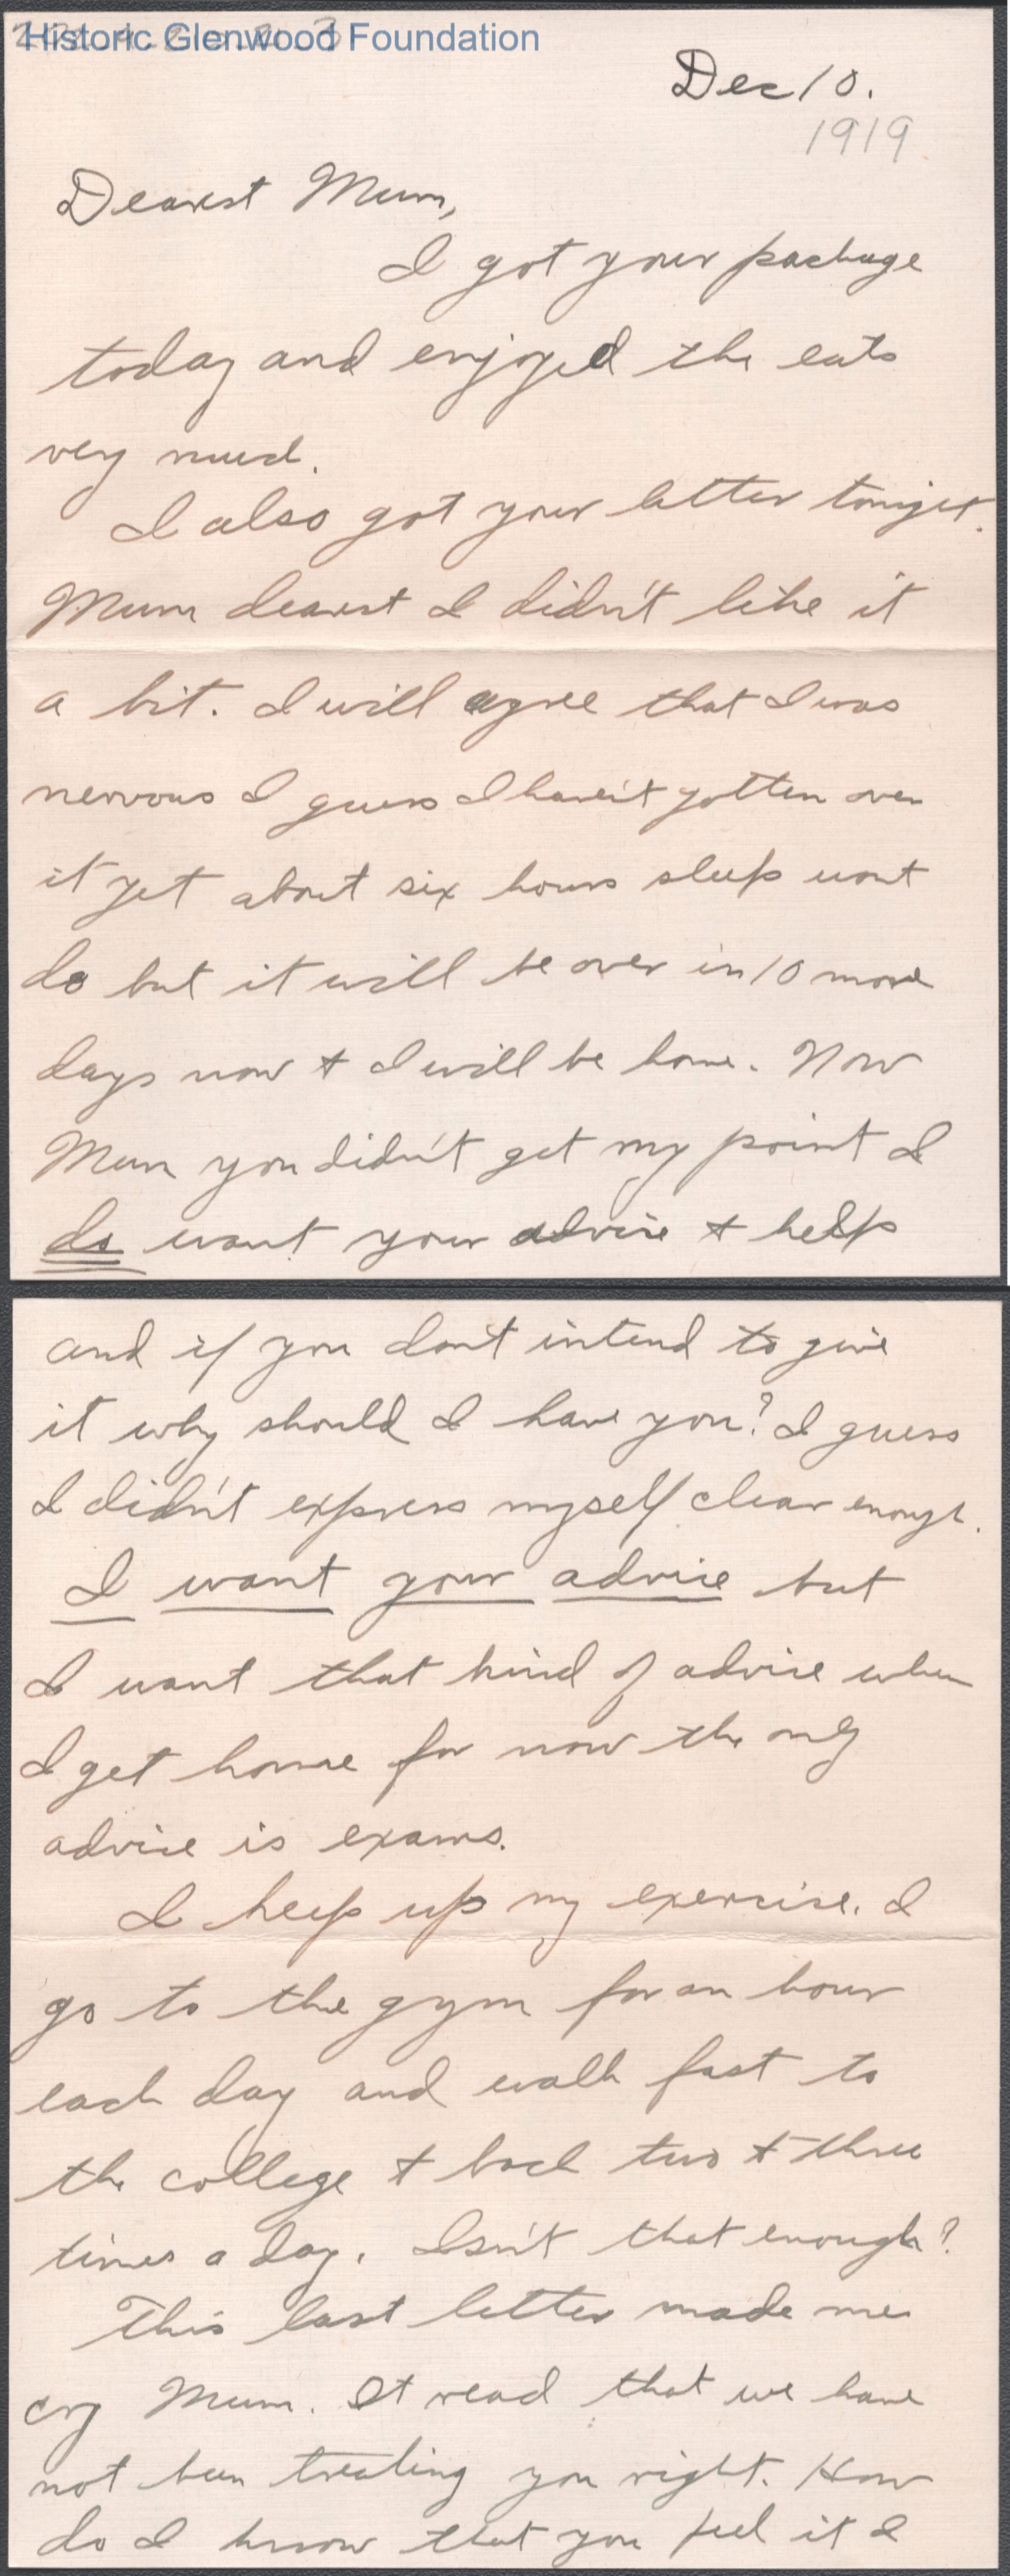 Historic Glenwood Foundation
Dec 10.
1919
Dearest Mum,
I got your package
today and enjoyed the eats
very much.
I also got your letter tonight.
Mum dearest I didn't like it
a bit. I will agree that I was
nervous I guess I haven't gotten over
it yet about six hours sleep wont
do but it will be over in 10 more
days now + I will be home. Now
Mum you didn't get my point I
do want your advice + help
and if you don't intend to give
it why should I have you? I guess
I didn't express myself clear enough.
I want your advice but
I want that kind of advice when
I get home for now the only
advice is exams.
I keep up my exercise. I
go to the gym for an hour
each day and walk fast to
the college + back two + three
times a day. Isn't that enough?
This last letter made me
cry Mum. It read that we have
not been treating you right. How
do I know that you feel it I